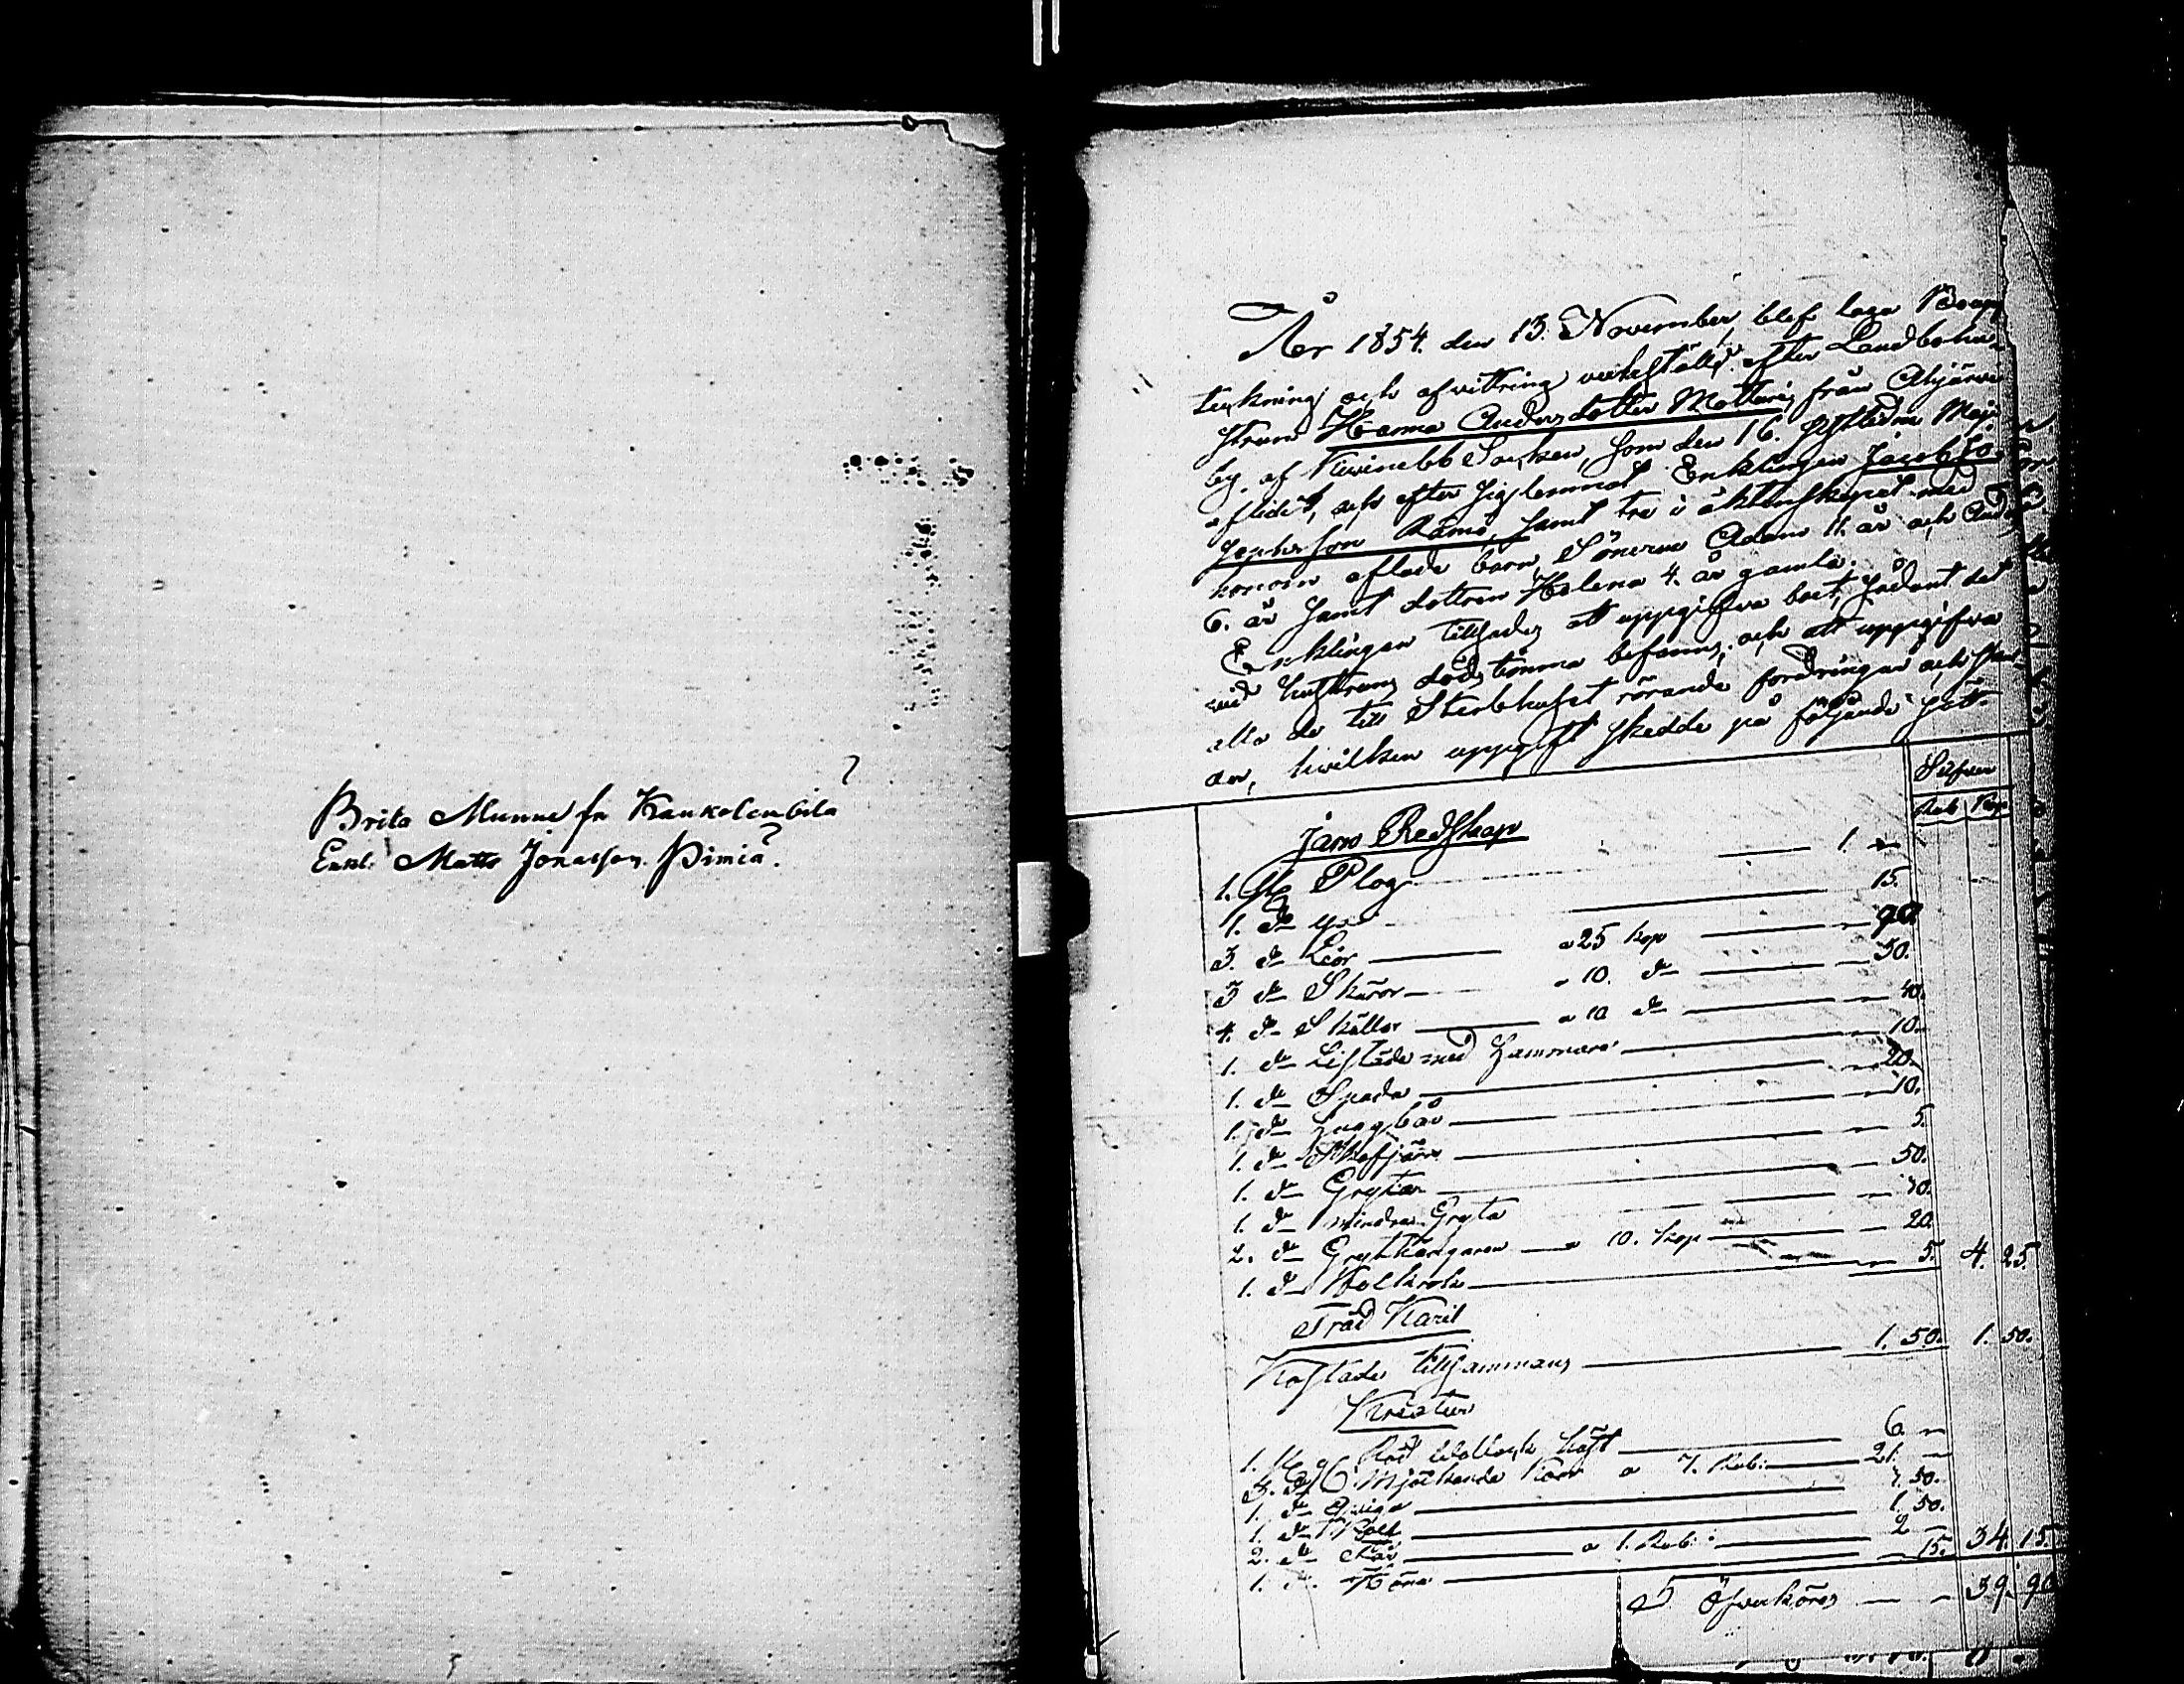 Brita Munne fr Kaukolenbila
Enkl. Matts Jonasson Pimiä?
År 1854. den 13. November, blef laga Boupp
teckning och afvittring verkstäld efter Landbohu-
strun Hanna Anders dotter Mattari, från Ahjärvi
by. af Kivinebb Socken, som den 16. sistledne Maji
aflidit, och efter sig lemnat Enklingen Jacob Jo-
sephsson Rämö, samt tre i äktenskapet med
honom aflade barn, Sönerne Adam 11. år och And
6. år samt dottren Helena 4. år gamla.
Enklingen tillsades att uppgifva boet, sådant det
vid hustruns dödstimma befanns, och att uppgifva
alla de till Sterbhuset rörande fordringar och skul-
der, hvilken uppgift skedde på följande sätt.
Silfver
Rub Kop
Järn Redskap
1. st. Plog 1. —
1. do 15.
3. do Liör a 25 kop 90
3 do Skäror " 10. do 30.
4. do Skällor a 10 do 40.
1. do Liståda med hammare 10.
1. do Spada 20.
1. do Huggbår 10.
1. do Skafjärn 5.
1. do Grytor 50.
1. do mindre Gryta 30.
2. do a 10. kop 20
1. do Kolkrok 5. 4. 25.
Träd Käril
Kostade tillsammans 1. 50. 1. 50.
Kreatur
1. st. Röd Wallack häst 6. —
3. do Mjölkande Koor a 7. Rub: 21. —
1. do Qviga 3. 50.
1. do Kalf 1. 50.
2. do Får a 1. Rub: 2 —
1. do Höna 15. 34. 15.
S Öfverföres — 39. 90